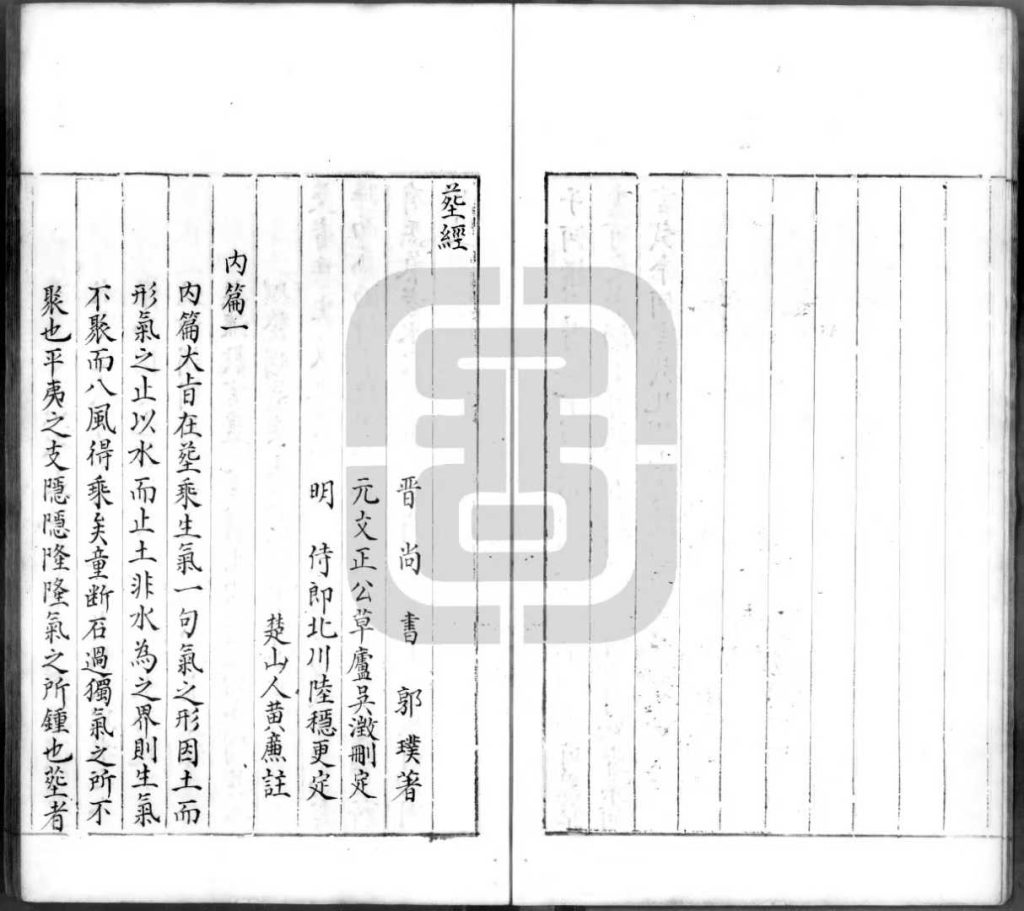 塟經
晋尚書郭璞著
元文正公草廬吳澂刪定
明侍郎北川陸穩更定
楚山人黃㢘註
内篇一
内篇大㫖在塟乘生氣一句氣之形因土而
形氣之止以水而止土非水為之界則生氣
不聚而八風得乘矣童断石過獨氣之所不
聚也平夷之支隱隱隆隆氣之所鍾也塟者